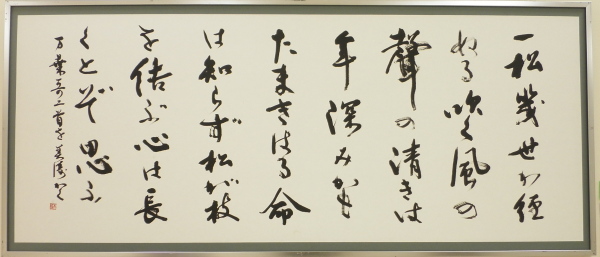 一松幾世か經
ぬる吹く風の
聲の清きは
年深みかも
たまきはる命
は知らず松が枝
を結ぶ心は長
くとぞ思ふ
万葉哥二首を